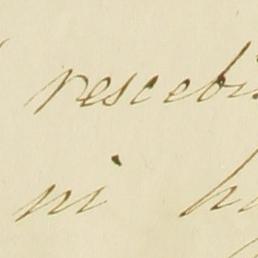 rescebi
ni h